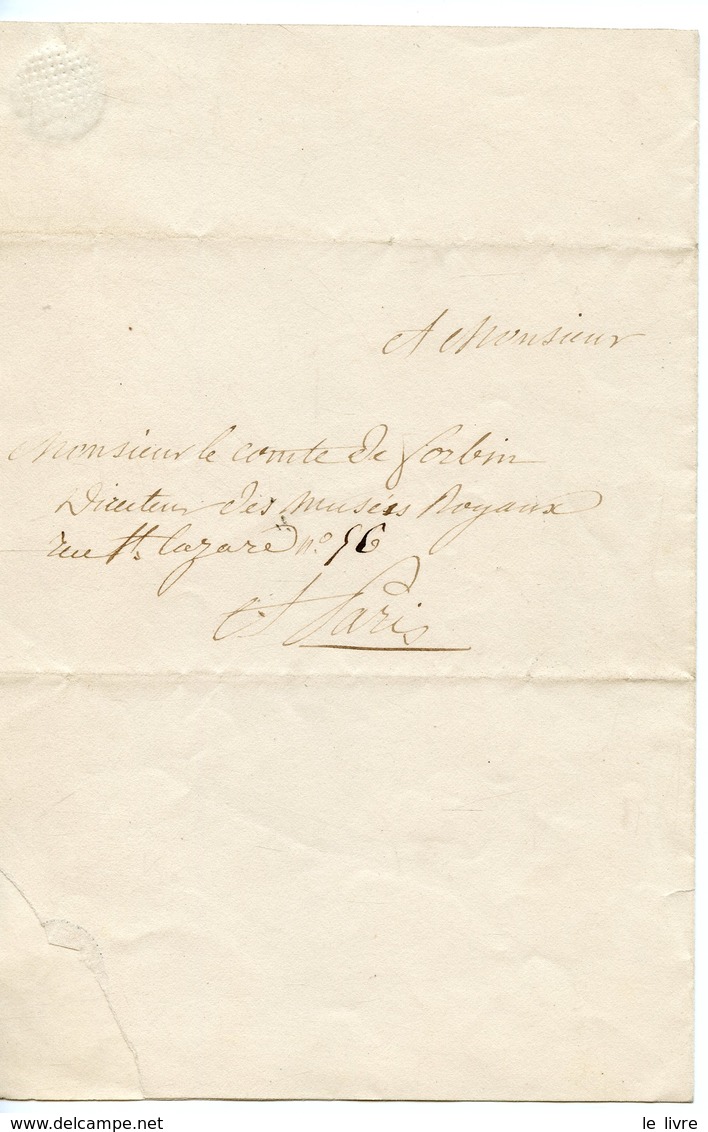 A Monsieur
Monsieur le comte de Forbin
Directeur des Musées Royaux
rue St. lazare n.o 56
A Paris
www.delcampe.net
le livre